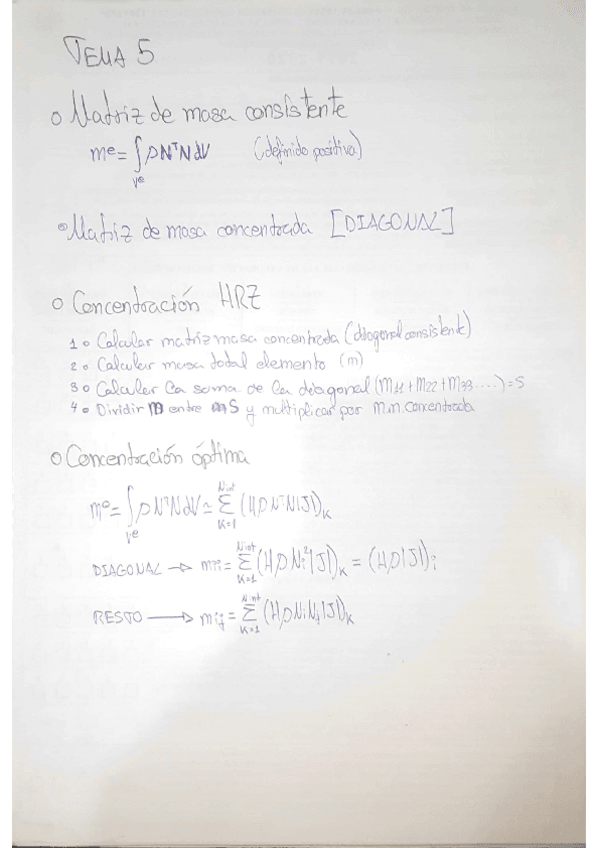 TEMA 5
o Matriz de masa consistente
mᵉ = ∫vᵉ ρNᵀN dV (definida positiva)
o Matriz de masa concentrada [DIAGONAL]
o Concentración HRZ
1 o Calcular matriz masa concentrada (diagonal consistente)
2 o Calcular masa total elemento (m)
3 o Calcular la suma de la diagonal (m11 + m22 + m33 ....) = S
4 o Dividir m entre S y multiplicar por m.m. concentrada
o Concentración óptima
mᵉ = ∫vᵉ ρNᵀN dV ≃ Σ Nint K=1 (HρNᵀN|J|)K
DIAGONAL → mii = Σ Nint K=1 (HρNi²|J|)K = (Hρ|J|)i
RESTO → mij = Σ Nint K=1 (HρNiNj|J|)K